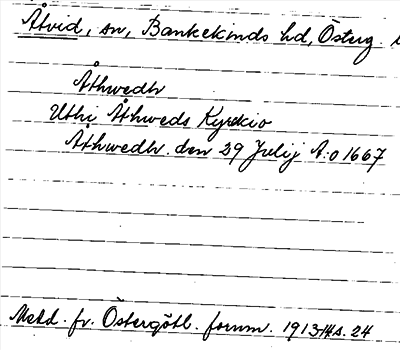 Åtvid, sn, Bankekinds hd, Österg.
Åthwedh
Uthi Åthweds Kyrckio
Åthwedh. den 29 Julij A:o 1667
Medd. fr. Östergötl. fornm. 1913-14 s. 24